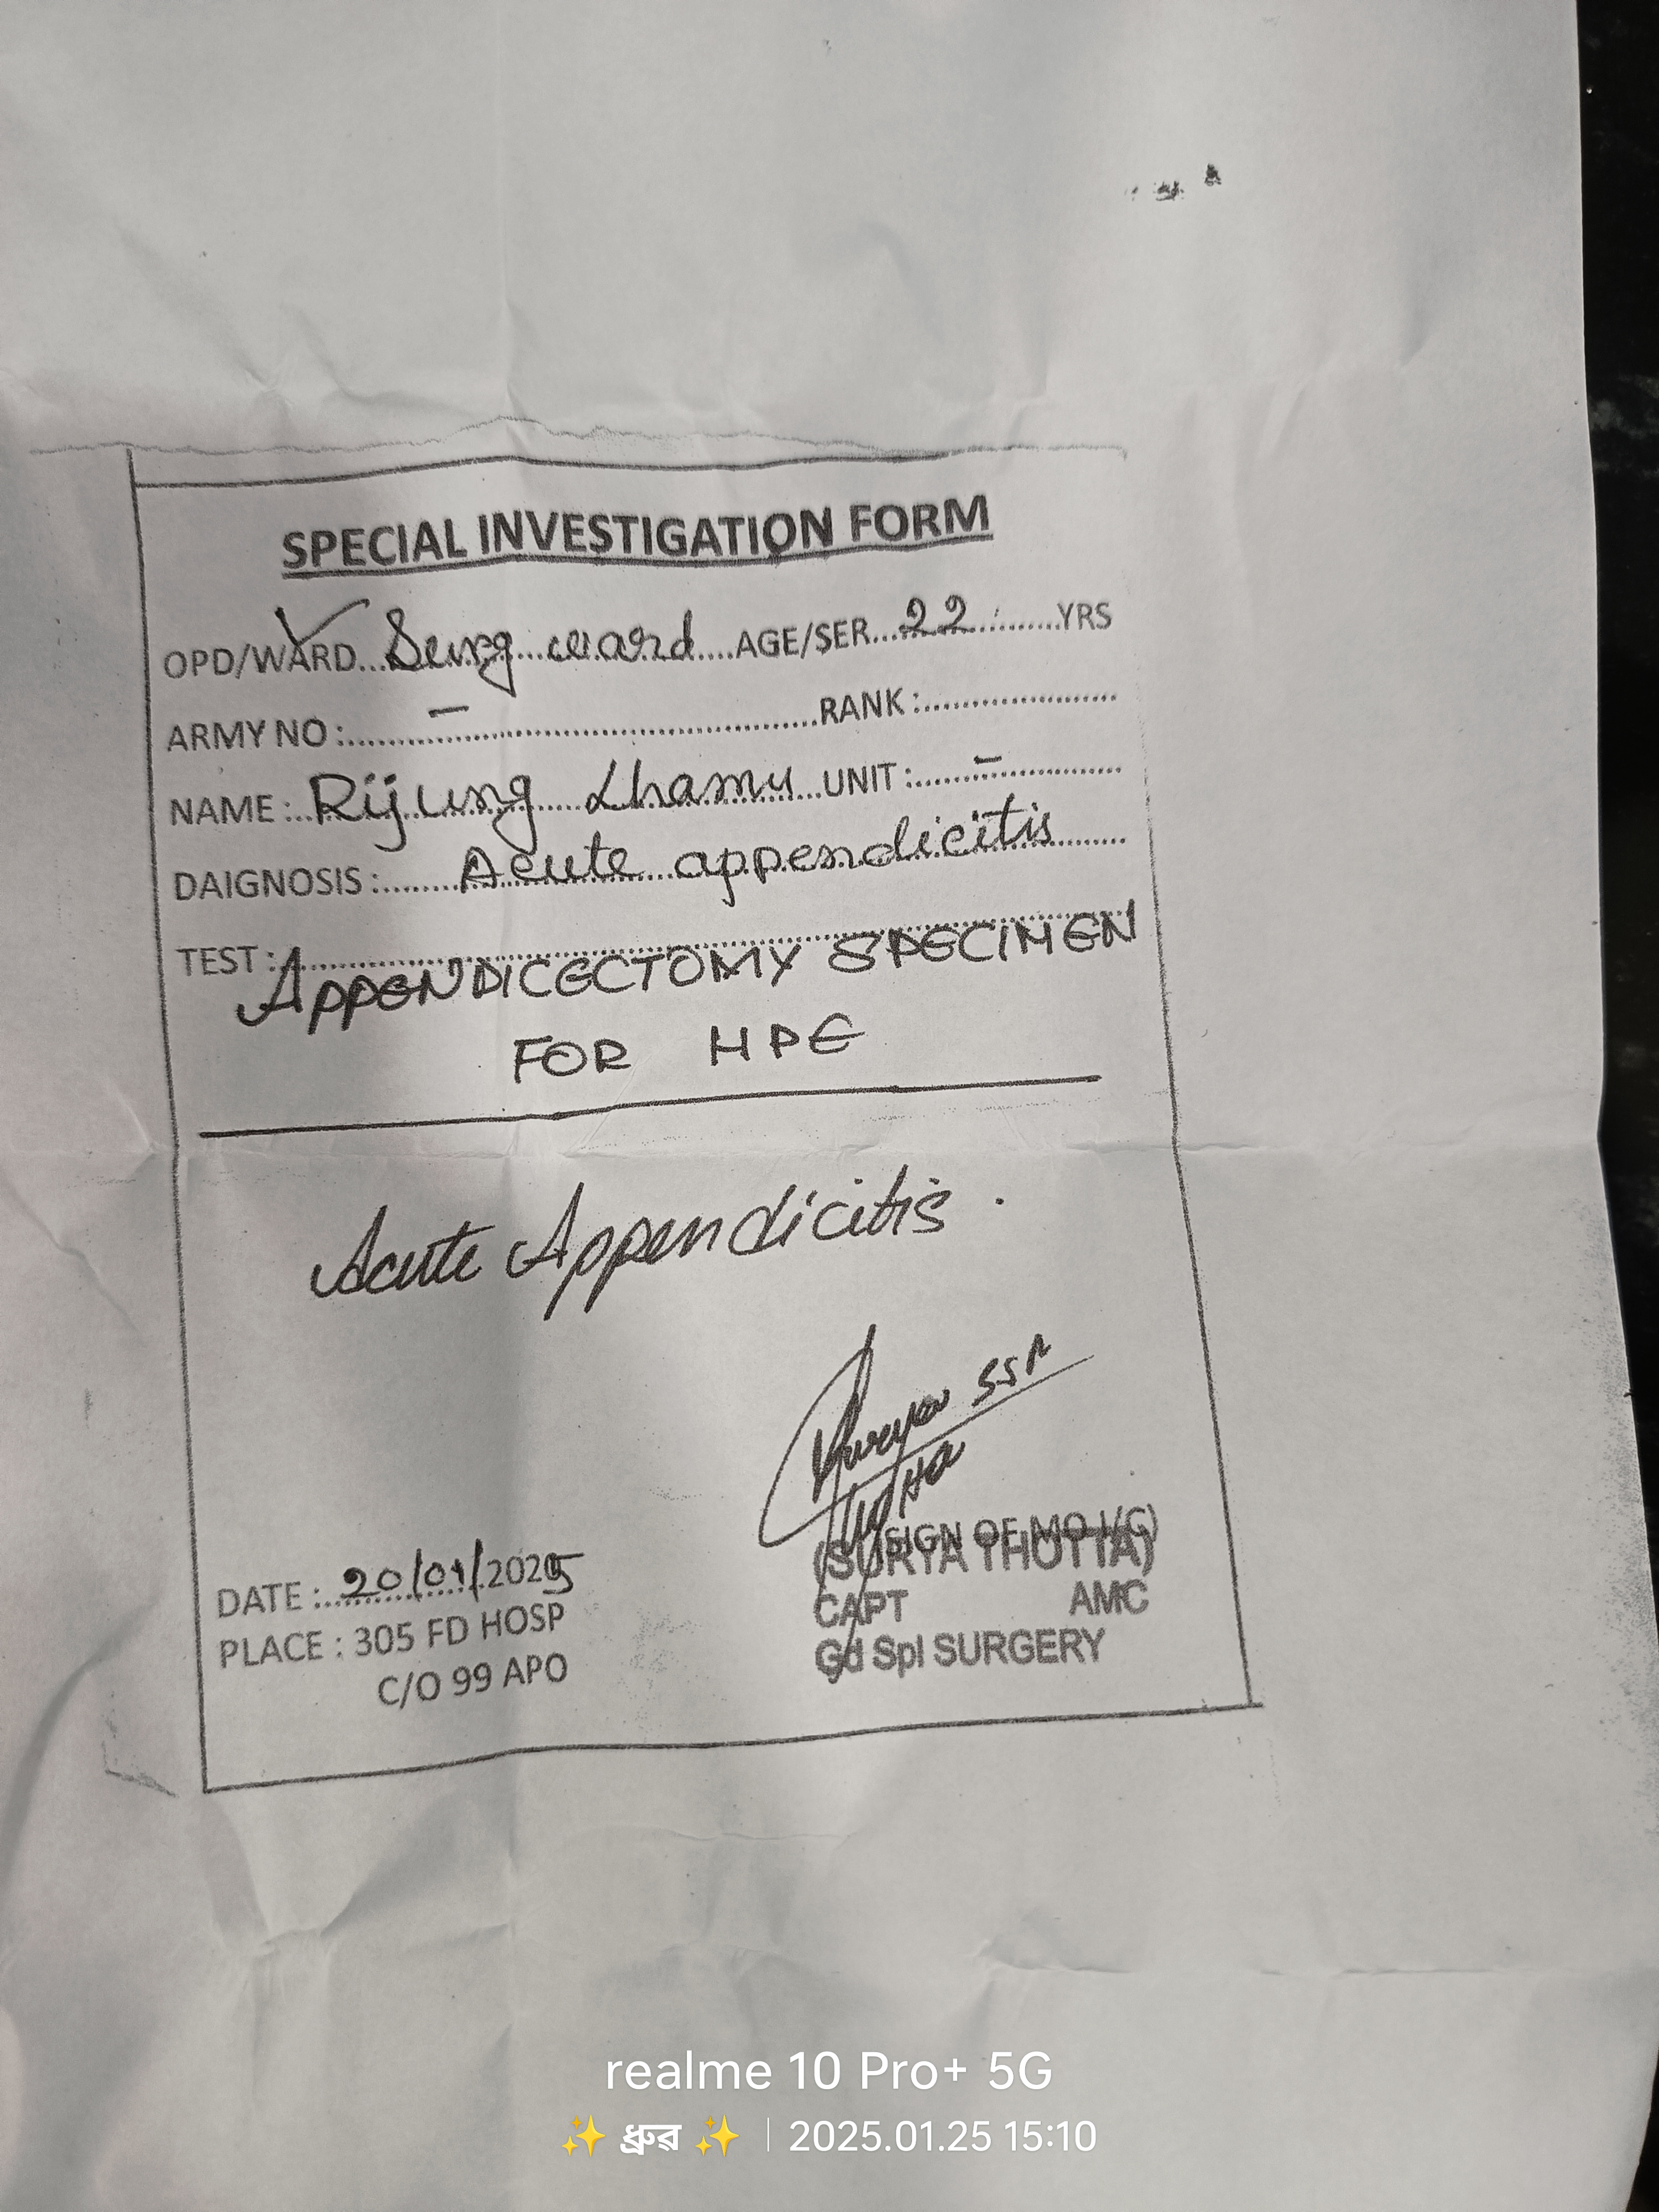 SPECIAL INVESTIGATION FORM
OPD/WARD...Surg ward....AGE/SER...22.......YRS
ARMY NO :... – ...RANK :...
NAME :..Rijung Lhamu..UNIT :... – ...
DAIGNOSIS :.....Acute appendicitis.......
TEST :...
APPENDICECTOMY SPECIMEN
FOR HPE
Acute Appendicitis .
(SIGN OF MO I/C)
(SURYA THOTTA)
CAPT AMC
Gd Spl SURGERY
DATE :..20/01/2025
PLACE : 305 FD HOSP
C/O 99 APO
realme 10 Pro+ 5G
✨ ধ্রুৱ ✨ | 2025.01.25 15:10